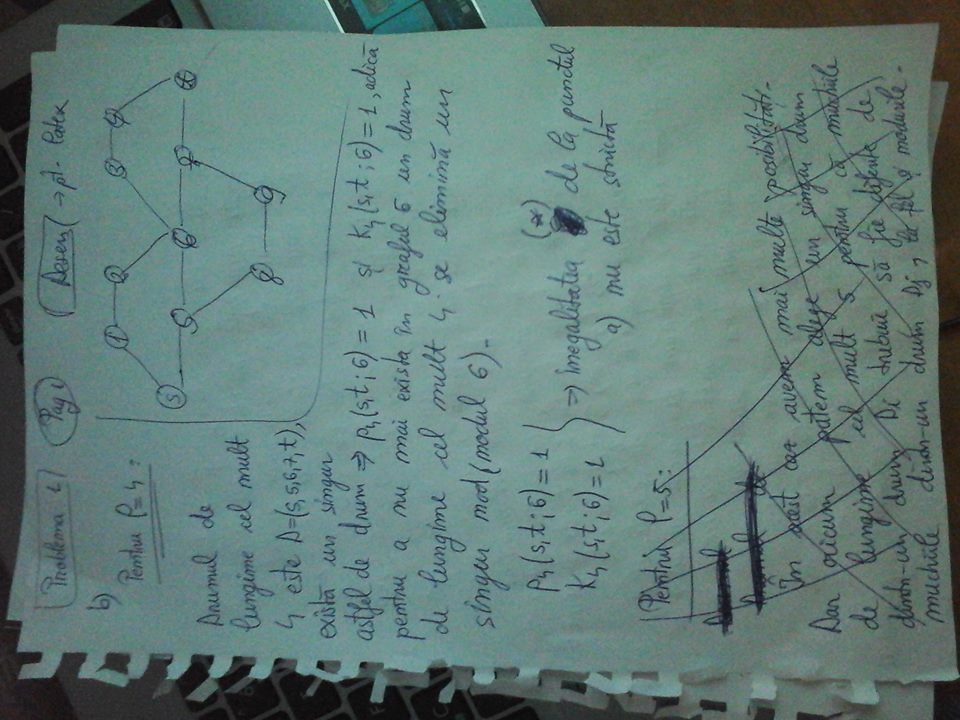 Problema 1 Pag 1 Desen → pt. Latex
b)
Pentru l=4:
1 2 3 4
s 5 6 7 t
8 9
Drumul de
lungime cel mult
4 este D=(s,5,6,7,t),
există un singur
astfel de drum ⇒ p₄(s,t;G)=1 și k₄(s,t;G)=1, adică
pentru a nu mai exista în graful G un drum
de lungime cel mult 4 se elimină un
singur nod (nodul 6).
p₄(s,t;G)=1
k₄(s,t;G)=1
⇒ inegalitatea (*) de la punctul
a) nu este strictă
Pentru l=5:
Drumul de
În acest caz avem mai multe posibilități.
Dar oricum putem alege un singur drum
de lungime cel mult 5 pentru că muchiile
dintr-un drum Di trebuie să fie diferite de
muchiile dintr-un drum Dj, la fel și nodurile.